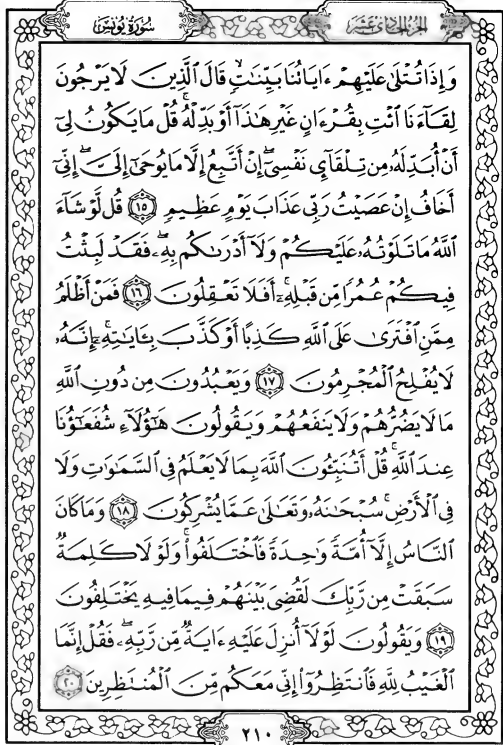 الجزء الحادي عشر
سورة يونس
وَإِذَا تُتْلَىٰ عَلَيْهِمْ ءَايَاتُنَا بَيِّنَٰتٍ قَالَ ٱلَّذِينَ لَا يَرْجُونَ
لِقَآءَنَا ٱئْتِ بِقُرْءَانٍ غَيْرِ هَٰذَآ أَوْ بَدِّلْهُ ۚ قُلْ مَا يَكُونُ لِىٓ
أَنْ أُبَدِّلَهُۥ مِن تِلْقَآئِ نَفْسِىٓ ۖ إِنْ أَتَّبِعُ إِلَّا مَا يُوحَىٰٓ إِلَىَّ ۖ إِنِّىٓ
أَخَافُ إِنْ عَصَيْتُ رَبِّى عَذَابَ يَوْمٍ عَظِيمٍ ١٥ قُل لَّوْ شَآءَ
ٱللَّهُ مَا تَلَوْتُهُۥ عَلَيْكُمْ وَلَآ أَدْرَىٰكُم بِهِۦ ۖ فَقَدْ لَبِثْتُ
فِيكُمْ عُمُرًا مِّن قَبْلِهِۦٓ ۚ أَفَلَا تَعْقِلُونَ ١٦ فَمَنْ أَظْلَمُ
مِمَّنِ ٱفْتَرَىٰ عَلَى ٱللَّهِ كَذِبًا أَوْ كَذَّبَ بِـَٔايَٰتِهِۦٓ ۚ إِنَّهُۥ
لَا يُفْلِحُ ٱلْمُجْرِمُونَ ١٧ وَيَعْبُدُونَ مِن دُونِ ٱللَّهِ
مَا لَا يَضُرُّهُمْ وَلَا يَنفَعُهُمْ وَيَقُولُونَ هَٰٓؤُلَآءِ شُفَعَٰٓؤُنَا
عِندَ ٱللَّهِ ۚ قُلْ أَتُنَبِّـُٔونَ ٱللَّهَ بِمَا لَا يَعْلَمُ فِى ٱلسَّمَٰوَٰتِ وَلَا
فِى ٱلْأَرْضِ ۚ سُبْحَٰنَهُۥ وَتَعَٰلَىٰ عَمَّا يُشْرِكُونَ ١٨ وَمَا كَانَ
ٱلنَّاسُ إِلَّآ أُمَّةً وَٰحِدَةً فَٱخْتَلَفُوا۟ ۚ وَلَوْلَا كَلِمَةٌ
سَبَقَتْ مِن رَّبِّكَ لَقُضِىَ بَيْنَهُمْ فِيمَا فِيهِ يَخْتَلِفُونَ
١٩ وَيَقُولُونَ لَوْلَآ أُنزِلَ عَلَيْهِ ءَايَةٌ مِّن رَّبِّهِۦ ۖ فَقُلْ إِنَّمَا
ٱلْغَيْبُ لِلَّهِ فَٱنتَظِرُوٓا۟ إِنِّى مَعَكُم مِّنَ ٱلْمُنتَظِرِينَ ٢٠
٢١٠